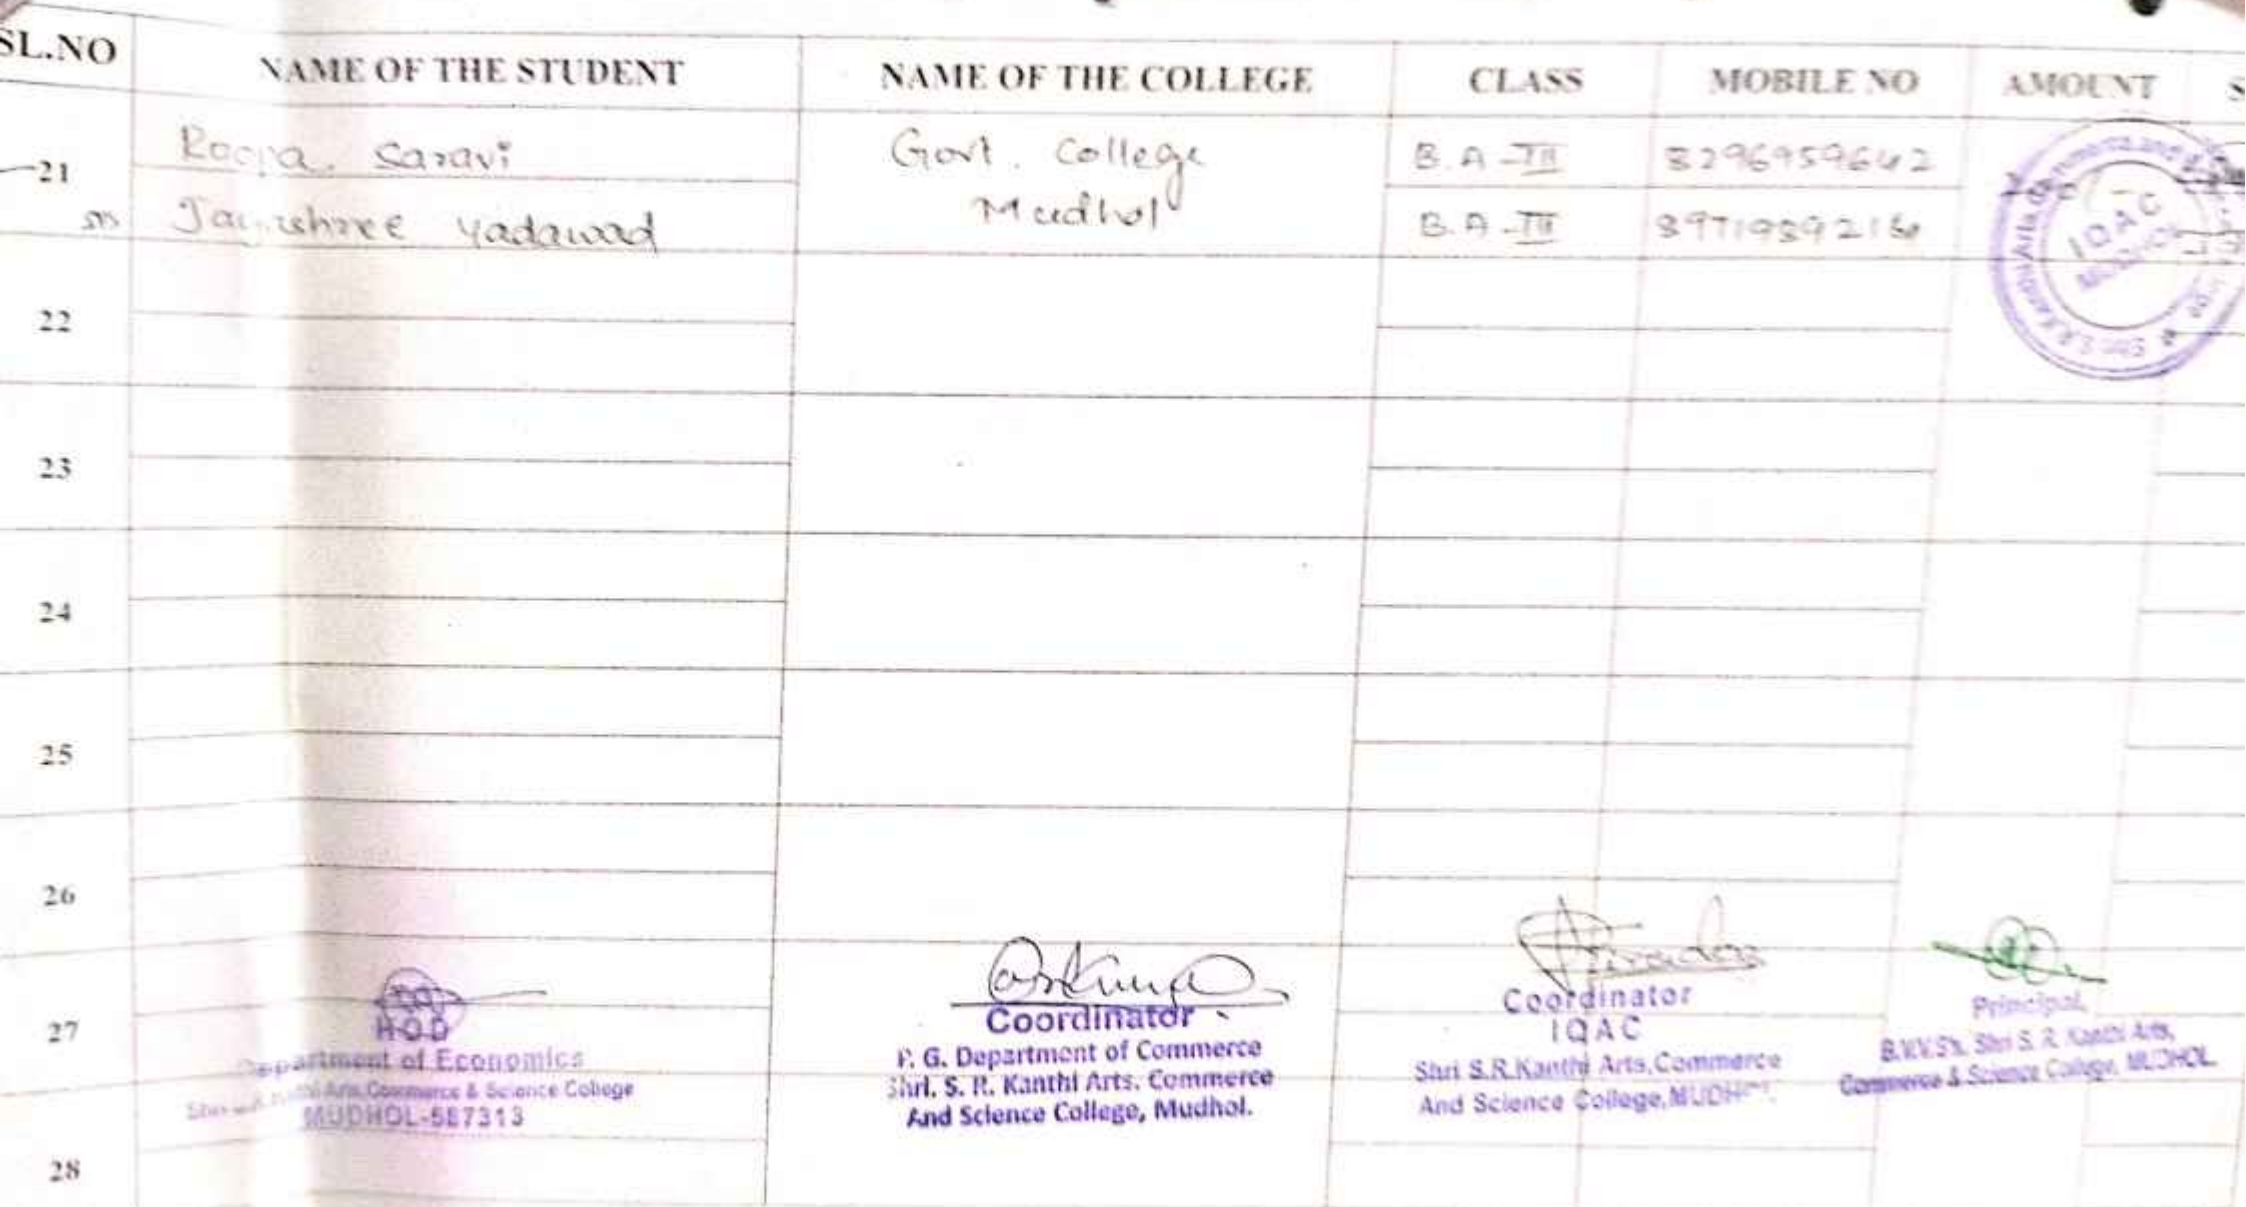 SL.NO NAME OF THE STUDENT NAME OF THE COLLEGE CLASS MOBILE NO AMOUNT
21 Roopa. Saravi Govt. College B.A-III 8296959642
Jayashree Yadawad Mudhol B.A-III
IQAC
MUDHOL
22
23
24
25
26
27
H.O.D
Department of Economics
Arts, Commerce & Science College
MUDHOL-587313
Coordinator
P. G. Department of Commerce
Shri. S. R. Kanthi Arts, Commerce
And Science College, Mudhol.
Coordinator
IQAC
Shri S.R.Kanthi Arts,Commerce
And Science College,
Principal,
B.V.V.S's. Shri S. R. Kanthi Arts,
Commerce & Science College, MUDHOL.
28